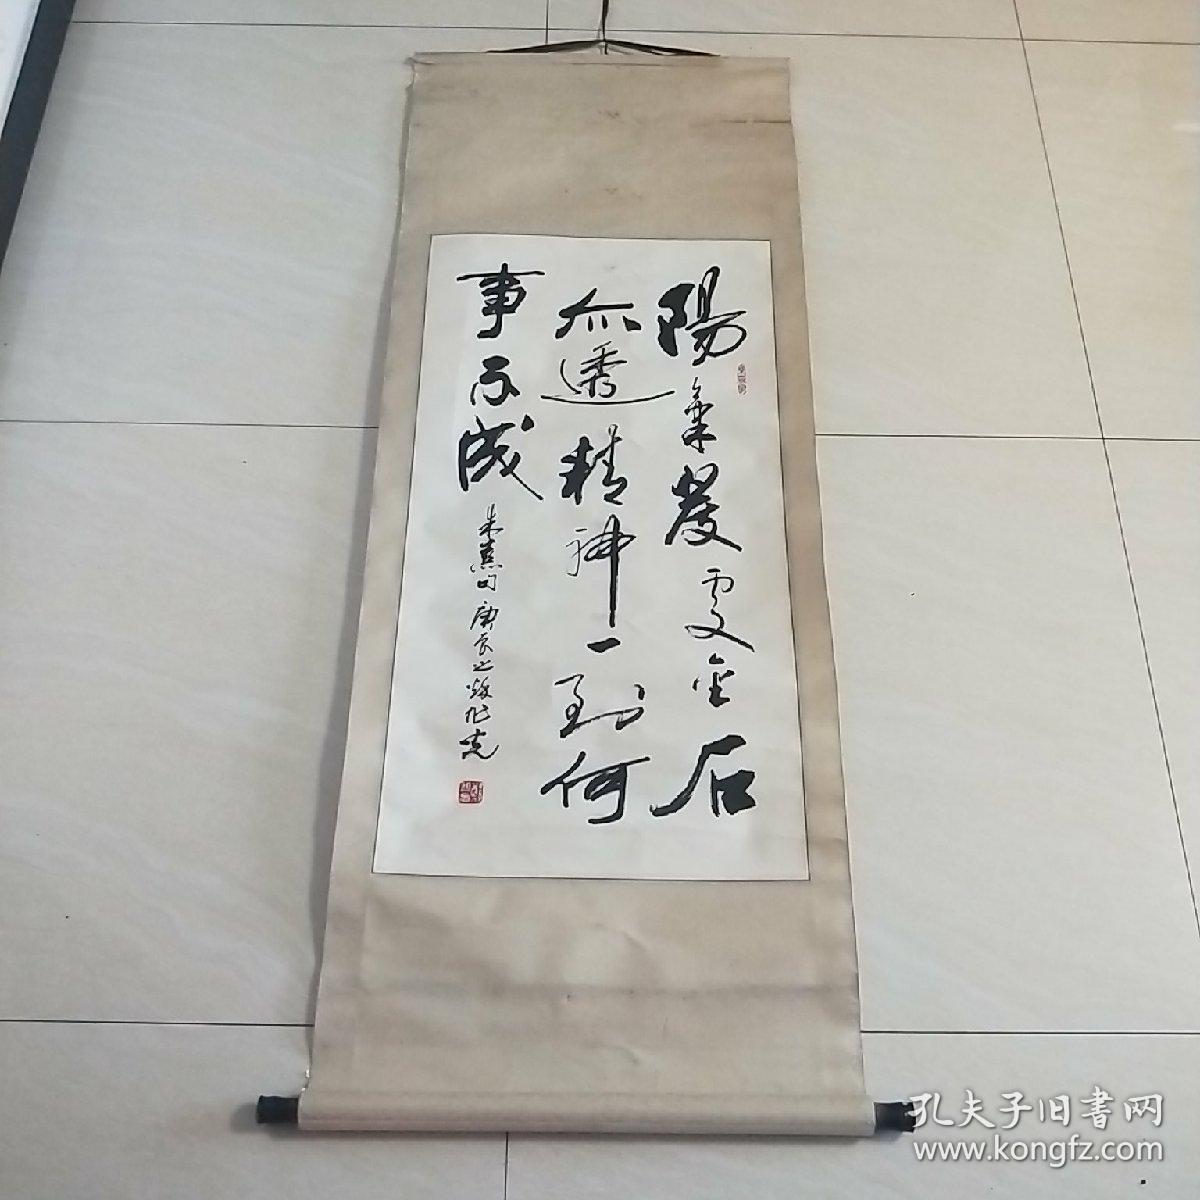 陽氣發處金石
亦透精神一到何
事不成
朱熹句庚辰之
孔夫子旧書网
www.kongfz.com